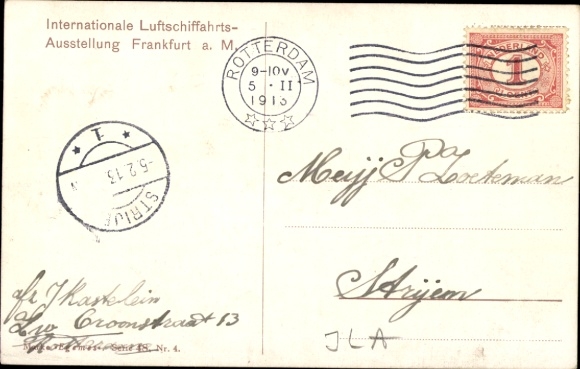 Internationale Luftschiffahrts-
Ausstellung Frankfurt a. M.
ROTTERDAM
9-10V
5 · II
1913
NEDERLAND
1
CENT
1
-5.2.13
STRIJE
Mejj Pa Zoeteman
Strijem
afz J Kastelein
Croonstraat 13
Serie 48, Nr. 4.
ILA